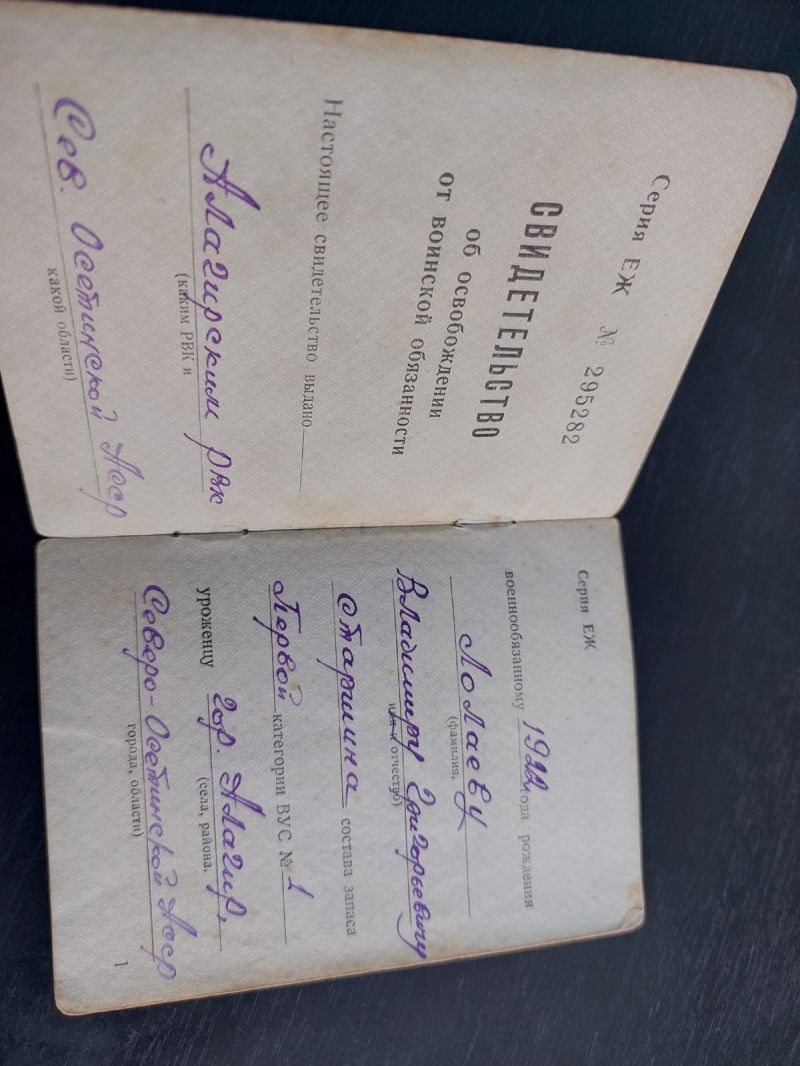 Серия ЕЖ № 295282
СВИДЕТЕЛЬСТВО
об освобождении
от воинской обязанности
Настоящее свидетельство выдано
Алагирским рвк
(каким РВК и
Сев. Осетинской Асср
какой области)
Серия ЕЖ
военнообязанному 1922 года рождения
Лолаеву
(фамилия,
Владимиру Григорьевичу
имя и отчество)
старшина состава запаса
Первой категории ВУС № 1
уроженцу гор. Алагир,
(села, района,
Северо-Осетинской Асср
города, области)
1